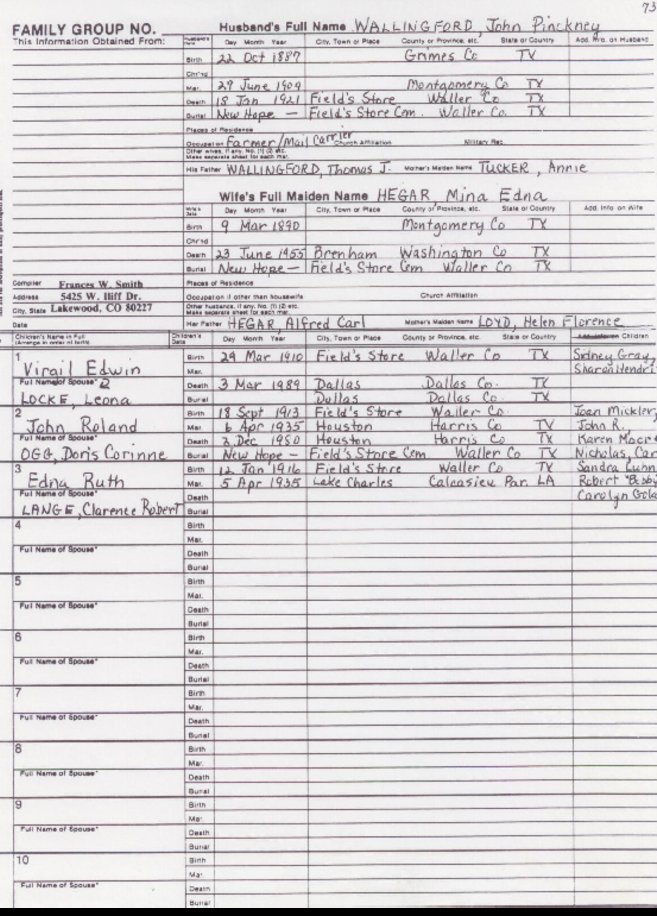 73
FAMILY GROUP NO. Husband's Full Name WALLINGFORD, John Pinckney
This Information Obtained From: Husband's Data Day Month Year City, Town or Place County or Province, etc. State or Country Add. Info. on Husband
Birth 22 Oct 1887 Grimes Co TX
Chr'nd
Mar. 29 June 1909 Montgomery Co TX
Death 18 Jan 1921 Field's Store Waller Co TX
Burial New Hope — Field's Store Cem. Waller Co. TX
Places of Residence
Occupation Farmer/Mail Carrier Church Affiliation Military Rec.
Other wives, if any, No. (1) (2) etc.
Make separate sheet for each mar.
His Father WALLINGFORD, Thomas J. Mother's Maiden Name TUCKER, Annie
Wife's Full Maiden Name HEGAR, Mina Edna
Wife's Data Day Month Year City, Town or Place County or Province, etc. State or Country Add. Info. on Wife
Birth 9 Mar 1890 Montgomery Co TX
Chr'nd
Death 23 June 1955 Brenham Washington Co TX
Burial New Hope — Field's Store Cem Waller Co TX
Compiler Frances W. Smith Places of Residence
Address 5425 W. Iliff Dr. Occupation if other than housewife Church Affiliation
City, State Lakewood, CO 80227 Other husbands, if any, No. (1) (2) etc.
Make separate sheet for each mar.
Date Her Father HEGAR, Alfred Carl Mother's Maiden Name LOYD, Helen Florence
Children's Name in Full (Arrange in order of birth) Children's Data Day Month Year City, Town or Place County or Province, etc. State or Country Children
1 Birth 29 Mar 1910 Field's Store Waller Co TX Sidney Gray,
Virgil Edwin Mar. Sharon Hendri
Full Name of Spouse* 2 Death 3 Mar 1989 Dallas Dallas Co. TX
LOCKE, Leona Burial Dallas Dallas Co. TX
2 Birth 18 Sept 1913 Field's Store Waller Co. Joan Mickler,
John Roland Mar. 6 Apr 1935 Houston Harris Co TX John R.,
Full Name of Spouse* Death 2 Dec 1980 Houston Harris Co TX Karen
OGG, Doris Corinne Burial New Hope — Field's Store Cem Waller Co TX Nicholas, Car
3 Birth 12 Jan 1916 Field's Store Waller Co TX Sandra Lunn,
Edna Ruth Mar. 5 Apr 1935 Lake Charles Calcasieu Par. LA Robert "Bobby
Full Name of Spouse* Death Carolyn
LANGE, Clarence Robert Burial
4 Birth
Mar.
Full Name of Spouse* Death
Burial
5 Birth
Mar.
Full Name of Spouse* Death
Burial
6 Birth
Mar.
Full Name of Spouse* Death
Burial
7 Birth
Mar.
Full Name of Spouse* Death
Burial
8 Birth
Mar.
Full Name of Spouse* Death
Burial
9 Birth
Mar.
Full Name of Spouse* Death
Burial
10 Birth
Mar.
Full Name of Spouse* Death
Burial